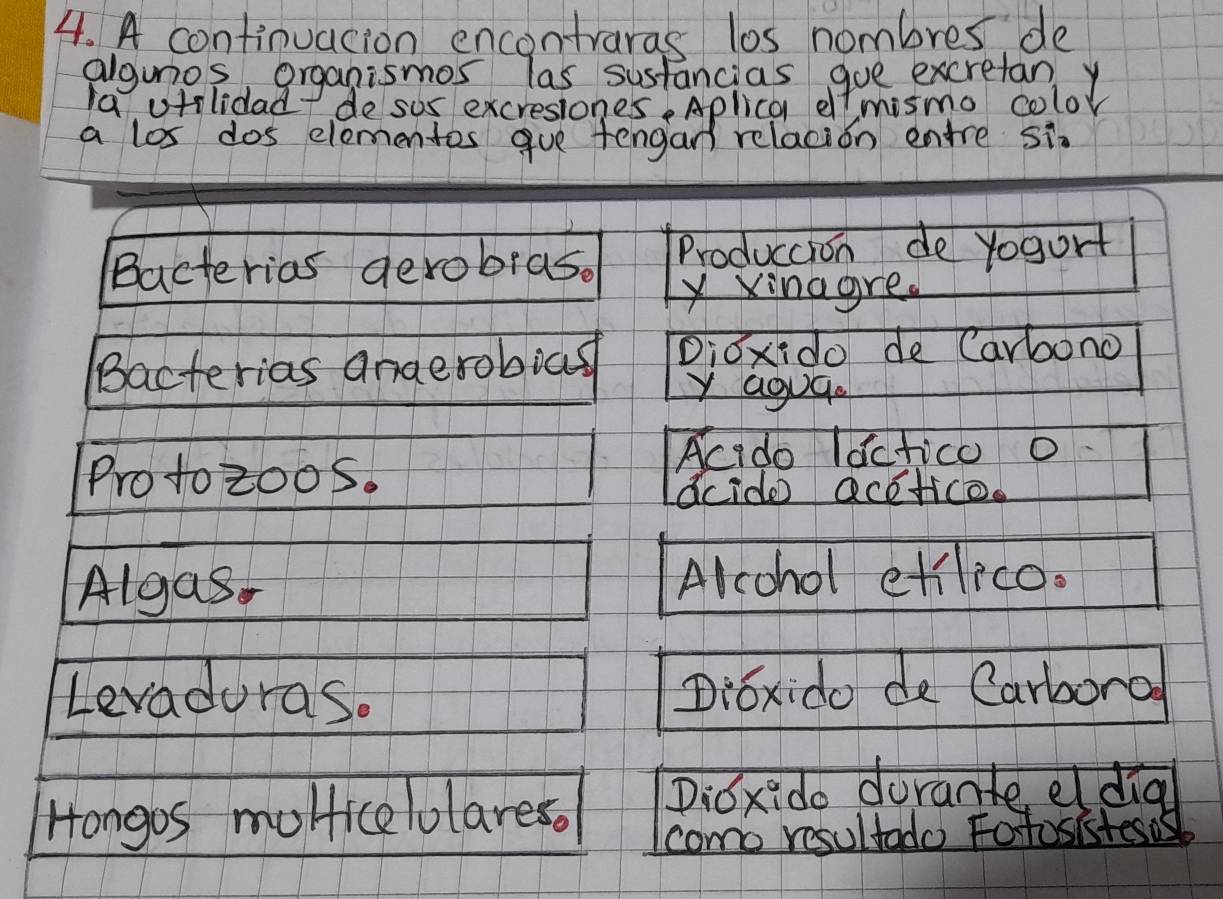 4. A continuacion encontraras los nombres de
algunos organismos las sustancias que excretan y
la utilidad de sus excresiones. Aplica el mismo color
a los dos elementos que tengan relación entre si.
Bacterias aerobias.
Producción de yogurt
y vinagre.
Bacterias anaerobias.
Dióxido de Carbono
y agua.
Protozoos.
Ácido láctico o
ácido acético.
Algas.
Alcohol etílico.
Levaduras.
Dióxido de Carbono.
Hongos multicelulares.
Dióxido durante el día
como resultado Fotosistesis.